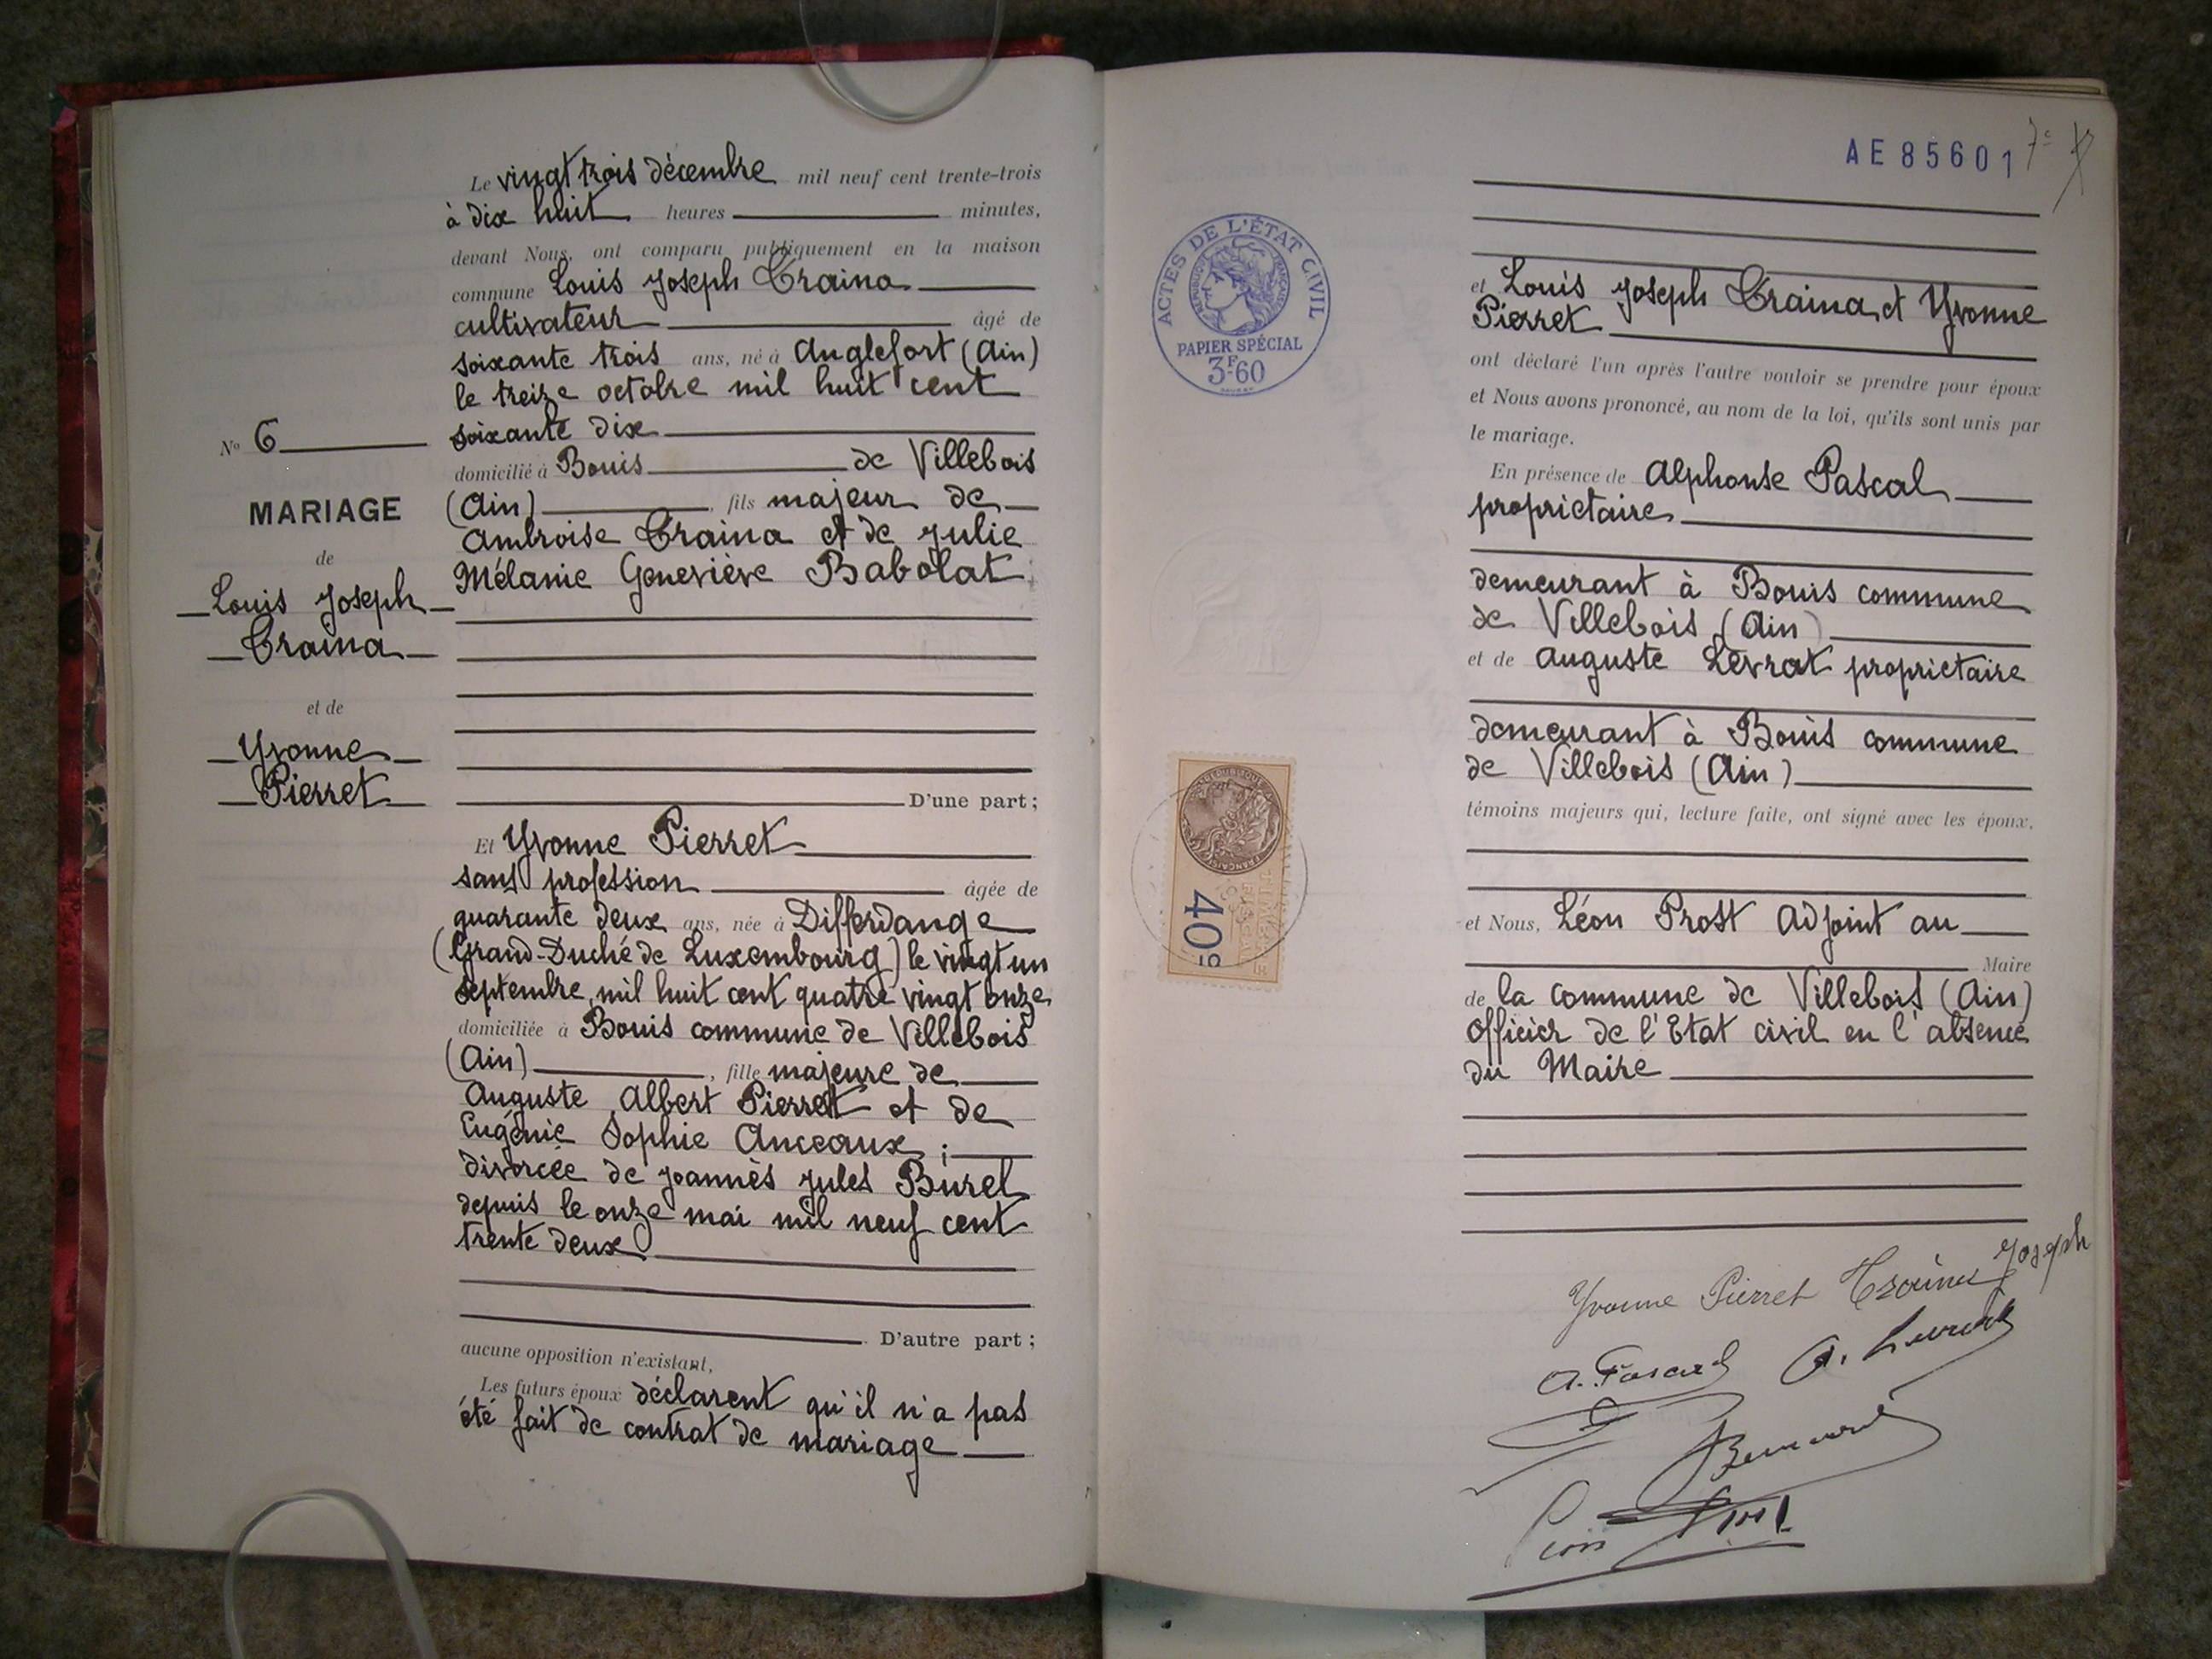 Le vingt trois décembre mil neuf cent trente-trois
à dix huit heures minutes,
devant Nous, ont comparu publiquement en la maison
commune Louis Joseph Traina
cultivateur âgé de
soixante trois ans, né à Anglefort (Ain)
le treize octobre mil huit cent
soixante dix
domicilié à Bouis de Villebois
(Ain), fils majeur de
Ambroise Traina et de Julie
Mélanie Geneviève Babolat
D'une part;
Et Yvonne Pierret
sans profession âgée de
quarante deux ans, née à Differdange
(Grand-Duché de Luxembourg) le vingt un
septembre mil huit cent quatre vingt onze
domiciliée à Bouis commune de Villebois
(Ain), fille majeure de
Auguste Albert Pierret et de
Eugénie Sophie Anceaux ;
divorcée de Joannès Jules Burel
depuis le onze mai mil neuf cent
trente deux
D'autre part;
aucune opposition n'existant,
Les futurs époux déclarent qu'il n'a pas
été fait de contrat de mariage
No 6
MARIAGE
de
Louis Joseph
Traina
et de
Yvonne
Pierret
AE 85601
7e
ACTES DE L'ÉTAT CIVIL
RÉPUBLIQUE FRANÇAISE
PAPIER SPÉCIAL
3F60
40c
et Louis Joseph Traina et Yvonne
Pierret
ont déclaré l'un après l'autre vouloir se prendre pour époux
et Nous avons prononcé, au nom de la loi, qu'ils sont unis par
le mariage.
En présence de Alphonse Pascal
propriétaire
demeurant à Bouis commune
de Villebois (Ain)
et de Auguste Levrat propriétaire
demeurant à Bouis commune
de Villebois (Ain)
témoins majeurs qui, lecture faite, ont signé avec les époux,
et Nous, Léon Prost Adjoint au
Maire
de la commune de Villebois (Ain)
Officier de l'Etat civil en l'absence
du Maire
Yvonne Pierret Traina Joseph
A. Pascal A. Levrat
Léon Prost